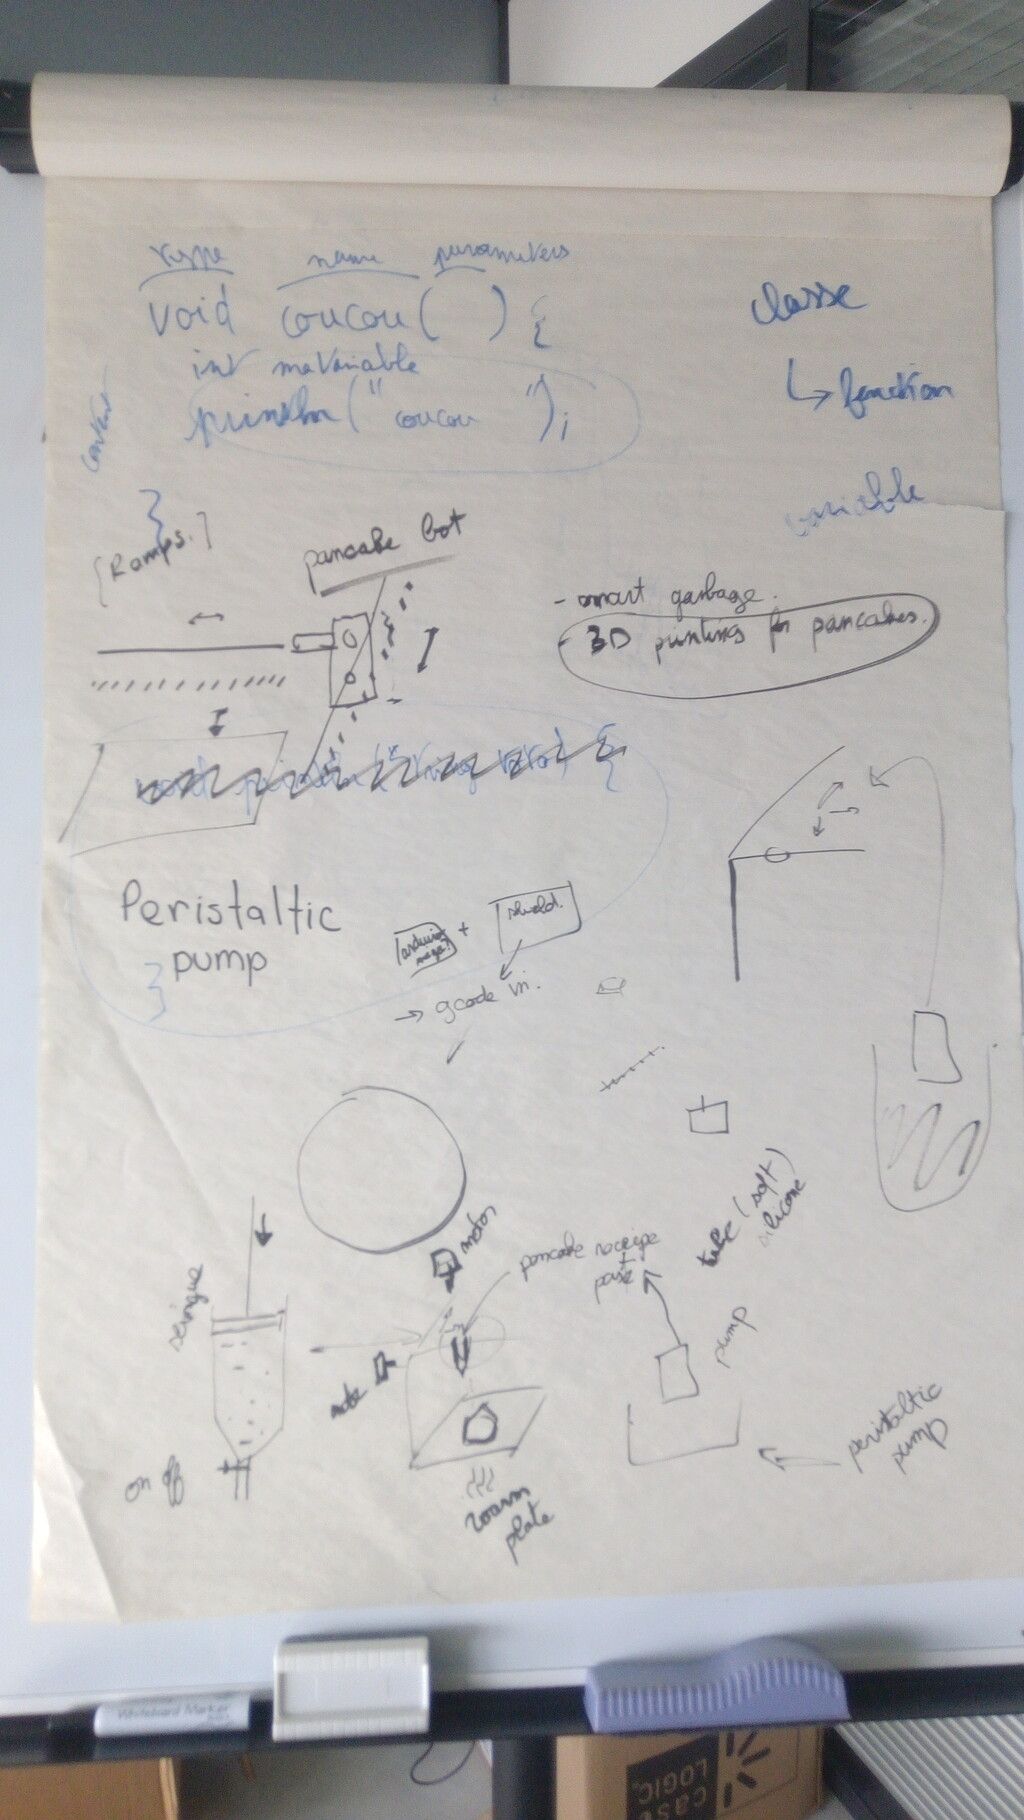 type name parameters
void coucou ( ) {
int maVariable
println (" coucou ");
}
content
classe
↳ function
variable
{Ramps.}
pancake bot
- smart garbage.
- 3D printing for pancakes.
Peristaltic
pump
}
arduino
mega +
shield.
→ gcode in.
tube (soft)
silicone
motor
pancake receipe
+
past
pump
seringue
on off
warm
plate
peristaltic
pump
Whiteboard Marker
case
LOGIC